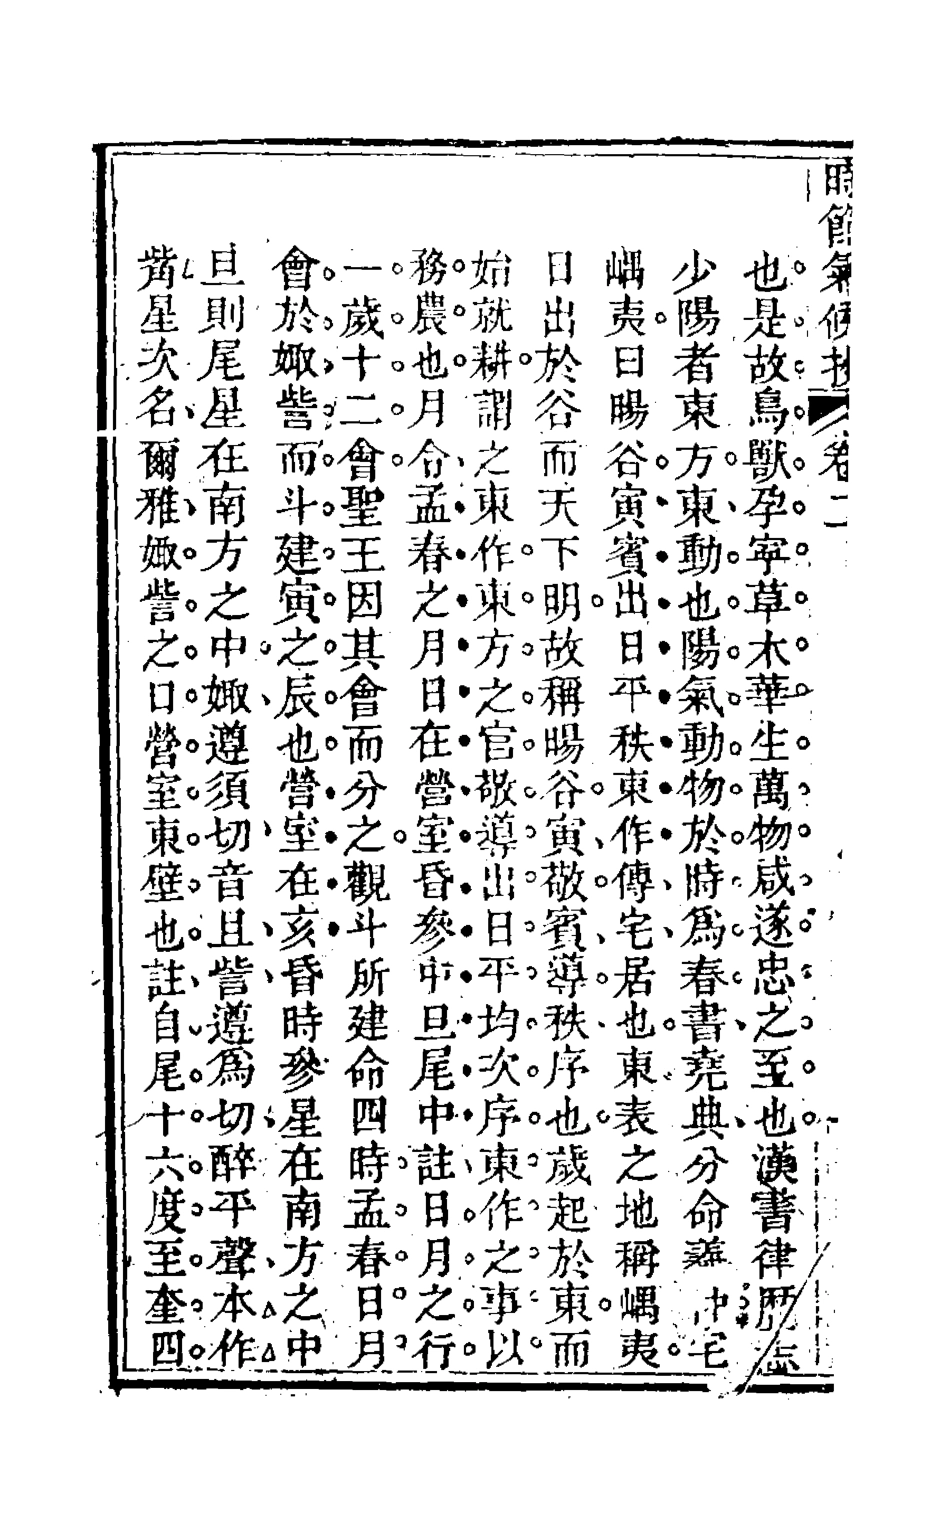 時節氣候抄 卷二
也是故鳥獸孕寧草木華生萬物咸遂忠之至也漢書律歷志
少陽者東方東動也陽氣動物於時爲春書堯典分命羲仲宅
嵎夷曰暘谷寅賓出日平秩東作傳宅居也東表之地稱嵎夷
日出於谷而天下明故稱暘谷寅敬賓導秩序也歲起於東而
始就耕謂之東作東方之官敬導出日平均次序東作之事以
務農也月令孟春之月日在營室昏參中旦尾中註日月之行
一歲十二會聖王因其會而分之觀斗所建命四時孟春日月
會於娵訾而斗建寅之辰也營室在亥昏時參星在南方之中
旦則尾星在南方之中娵遵須切音且訾遵爲切醉平聲本作
觜星次名爾雅娵訾之口營室東壁也註自尾十六度至奎四